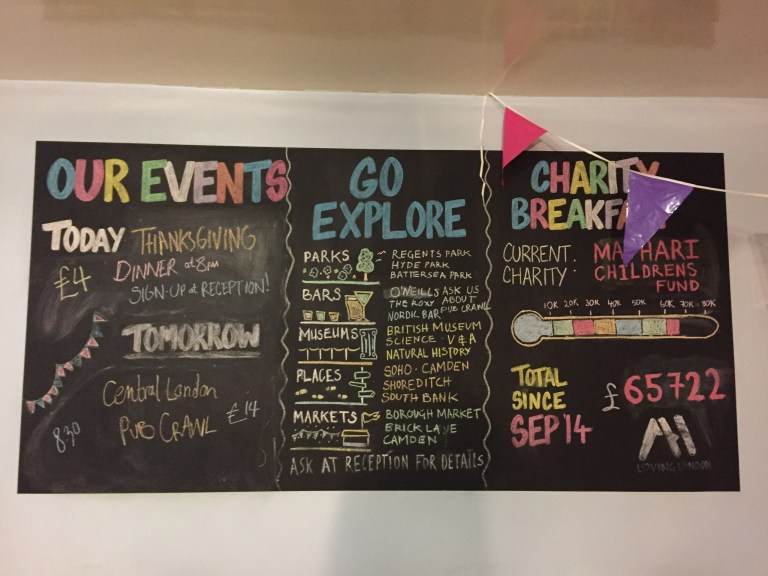 OUR EVENTS
TODAY THANKSGIVING
£4 DINNER at 8pm
SIGN-UP at RECEPTION!
TOMORROW
Central London
830 PUB CRAWL £14
GO
EXPLORE
PARKS
REGENTS PARK
HYDE PARK
BATTERSEA PARK
BARS
O'NEILLS
THE ROXY
NORDIC BAR
ASK US
ABOUT
PUB CRAWL
MUSEUMS
BRITISH MUSEUM
SCIENCE · V & A
NATURAL HISTORY
PLACES
SOHO · CAMDEN
SHOREDITCH
SOUTH BANK
MARKETS
BOROUGH MARKET
BRICK LANE
CAMDEN
ASK AT RECEPTION FOR DETAILS
CHARITY
BREAKFA
CURRENT CHARITY:
MATHARI
CHILDRENS
FUND
10K 20K 30K 40K 50K 60K 70K 80K
TOTAL
SINCE
SEP 14
£65722
LOVING LONDON